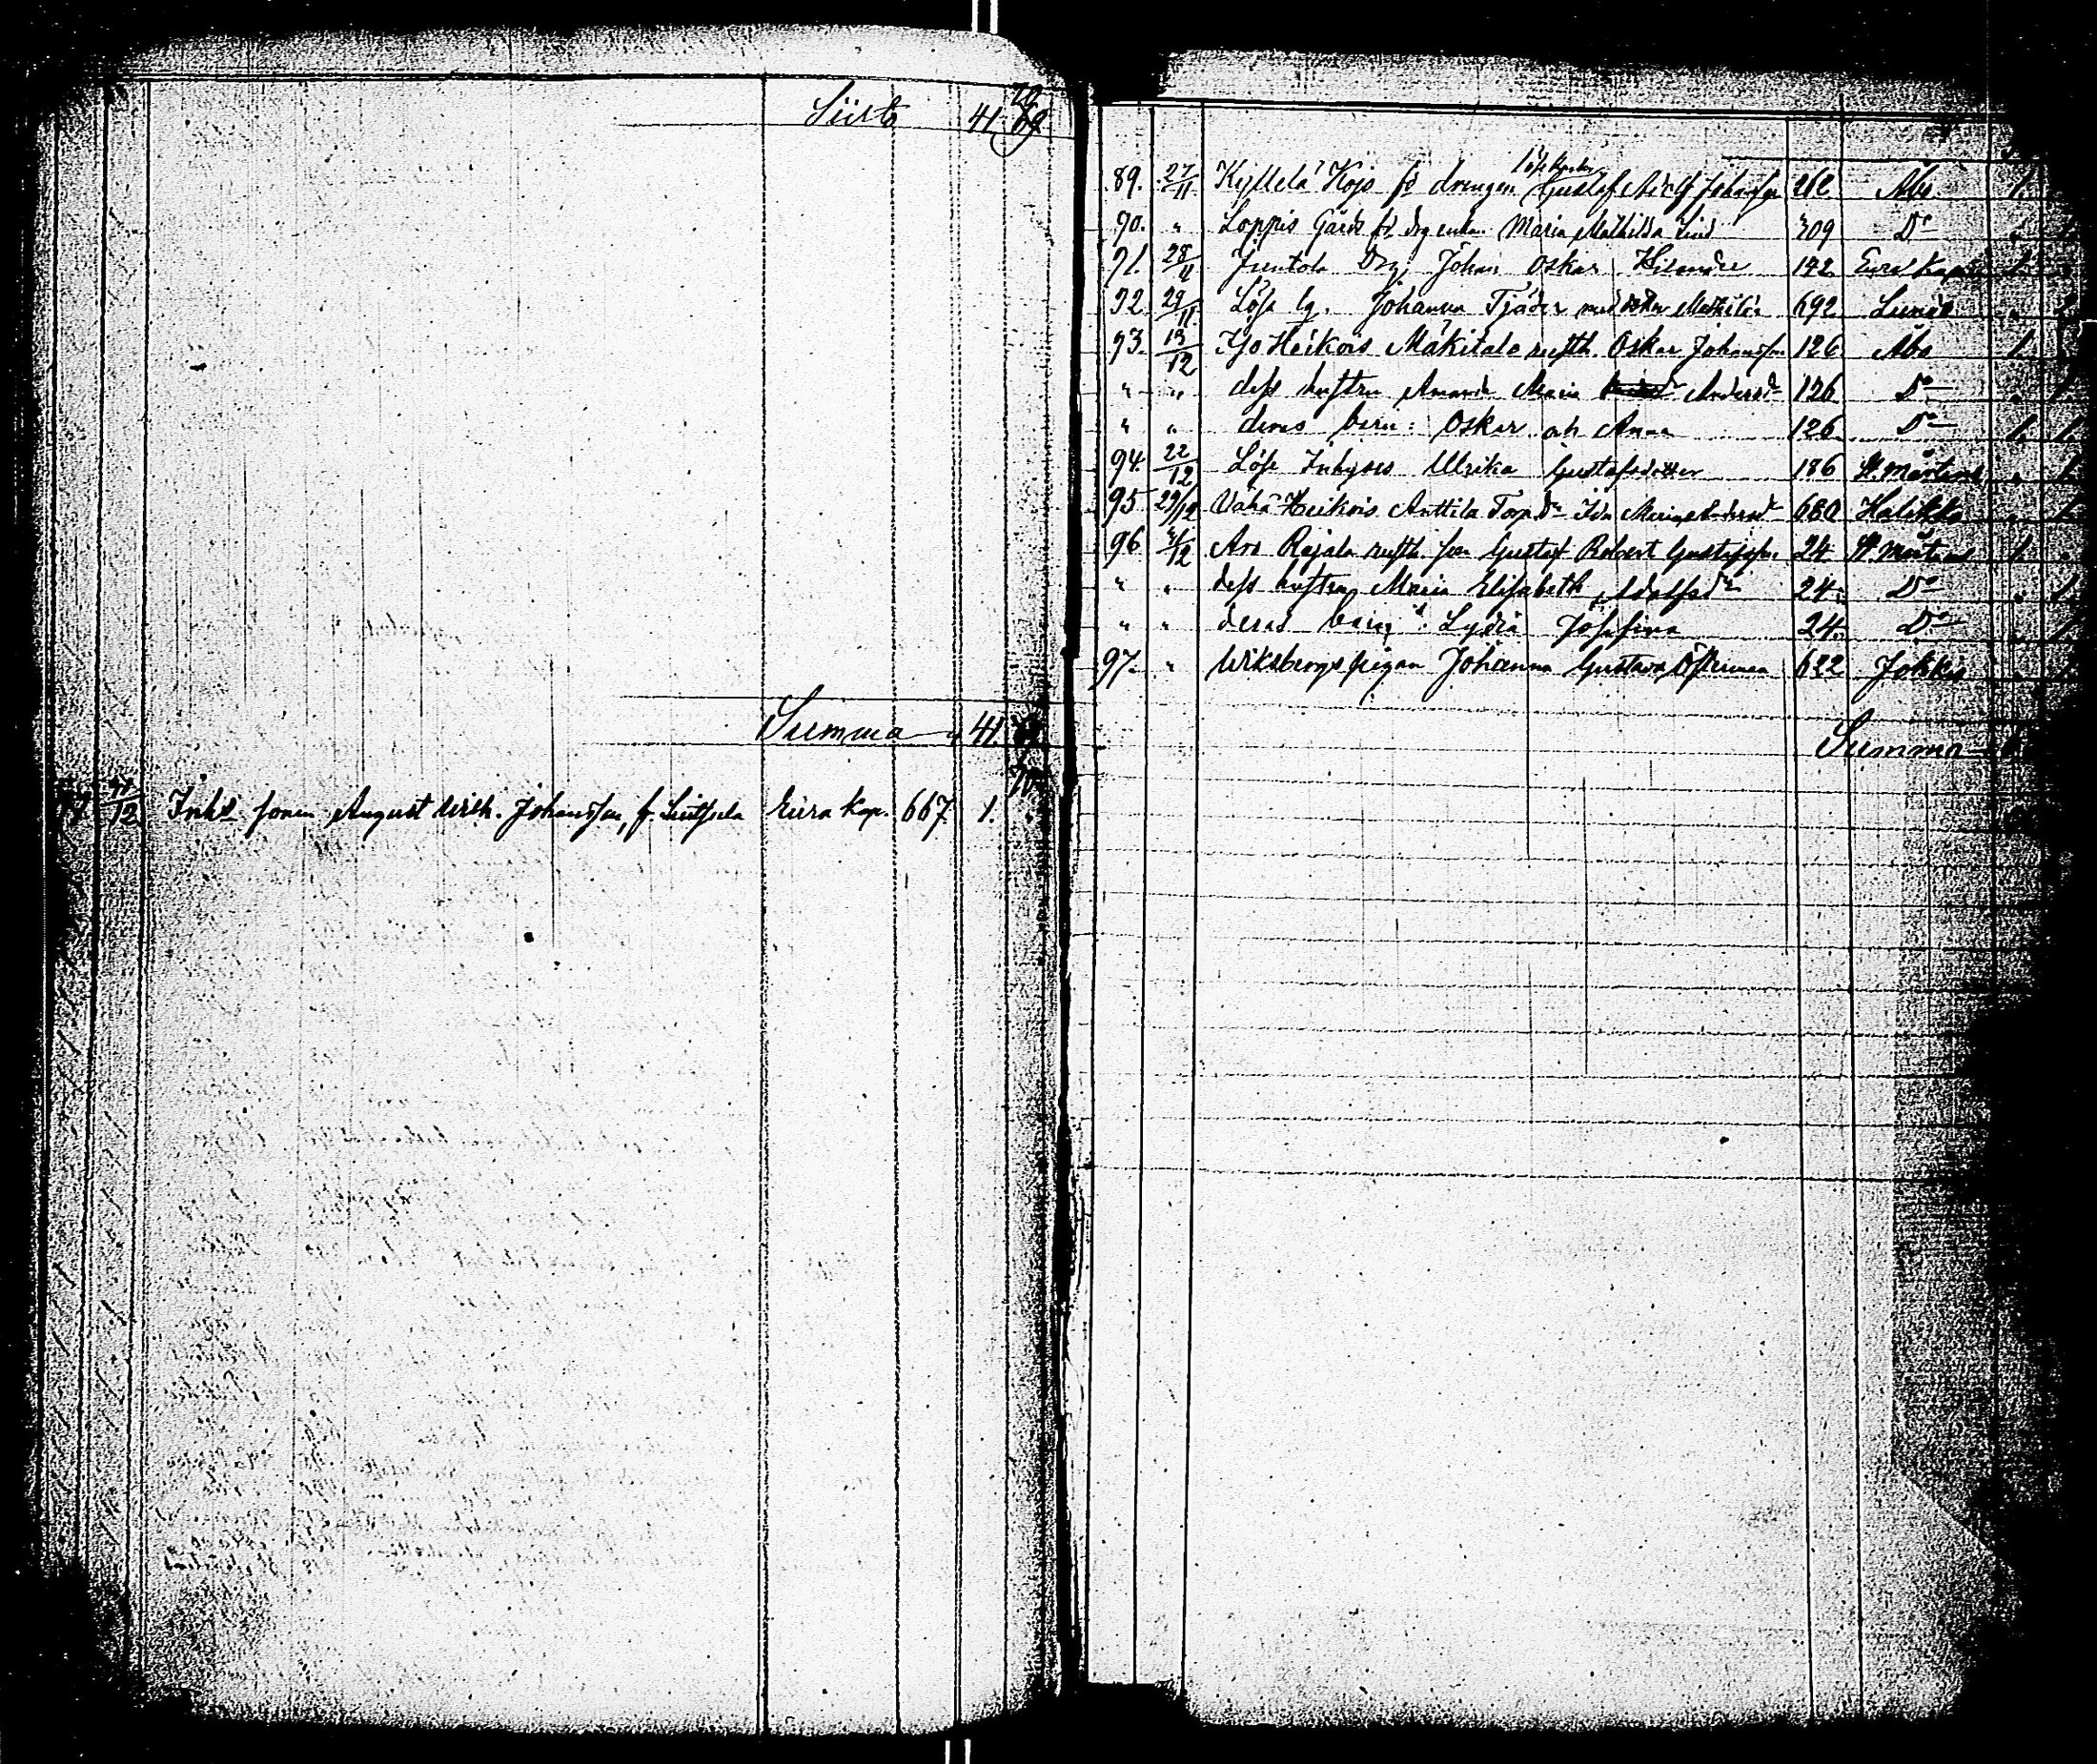 Siirto 41. 69
Summa 41.
70
41/12 Inhs sonen August Wilh. Johansson, fr. Eura Kap. 667. 1.
89. 27/11 Kyllelä Kojs fd drengen Gustaf Adolf Johansson 262 Åbo 1.
90. " Loppis Gårds fd drg enkan Maria Mathilda Lind 309 Do " 1.
91. 28/11 Juntola Drg. Johan Oskar Hilander 142 Eura Kapell 1.
92. 29/11 Löse Johanna Tjäder med dotter Mathilda 692 "
93. 13/12 Yso Heikois Mäkitalo rusth. Oskar Johansson 126 Åbo 1.
" " dess hustru Amanda Maria Andersdr 126 Do " 1.
" " deras barn: Oskar och Anna 126 Do 1. 1.
94. 22/12 Löse Inhyses Ulrika Gustafsdotter 186 St. Mårtens " 1.
95 29/12 Vähä-Heikois Anttila Torp.dr Ida Maria Andersdr 680 Halikko " 1.
96 Aro Rajala rusth. son Gustaf Robert Gustafsson 24 St. Mårtens 1. "
" " dess hustru Maria Elisabeth Adolfsdr 24. Do " 1.
" " deras barn: Lydia Josefina 24. Do " 1.
97. " Wiksbergs pigan Johanna Gustava Österman 622 Jokkis " 1.
Summa